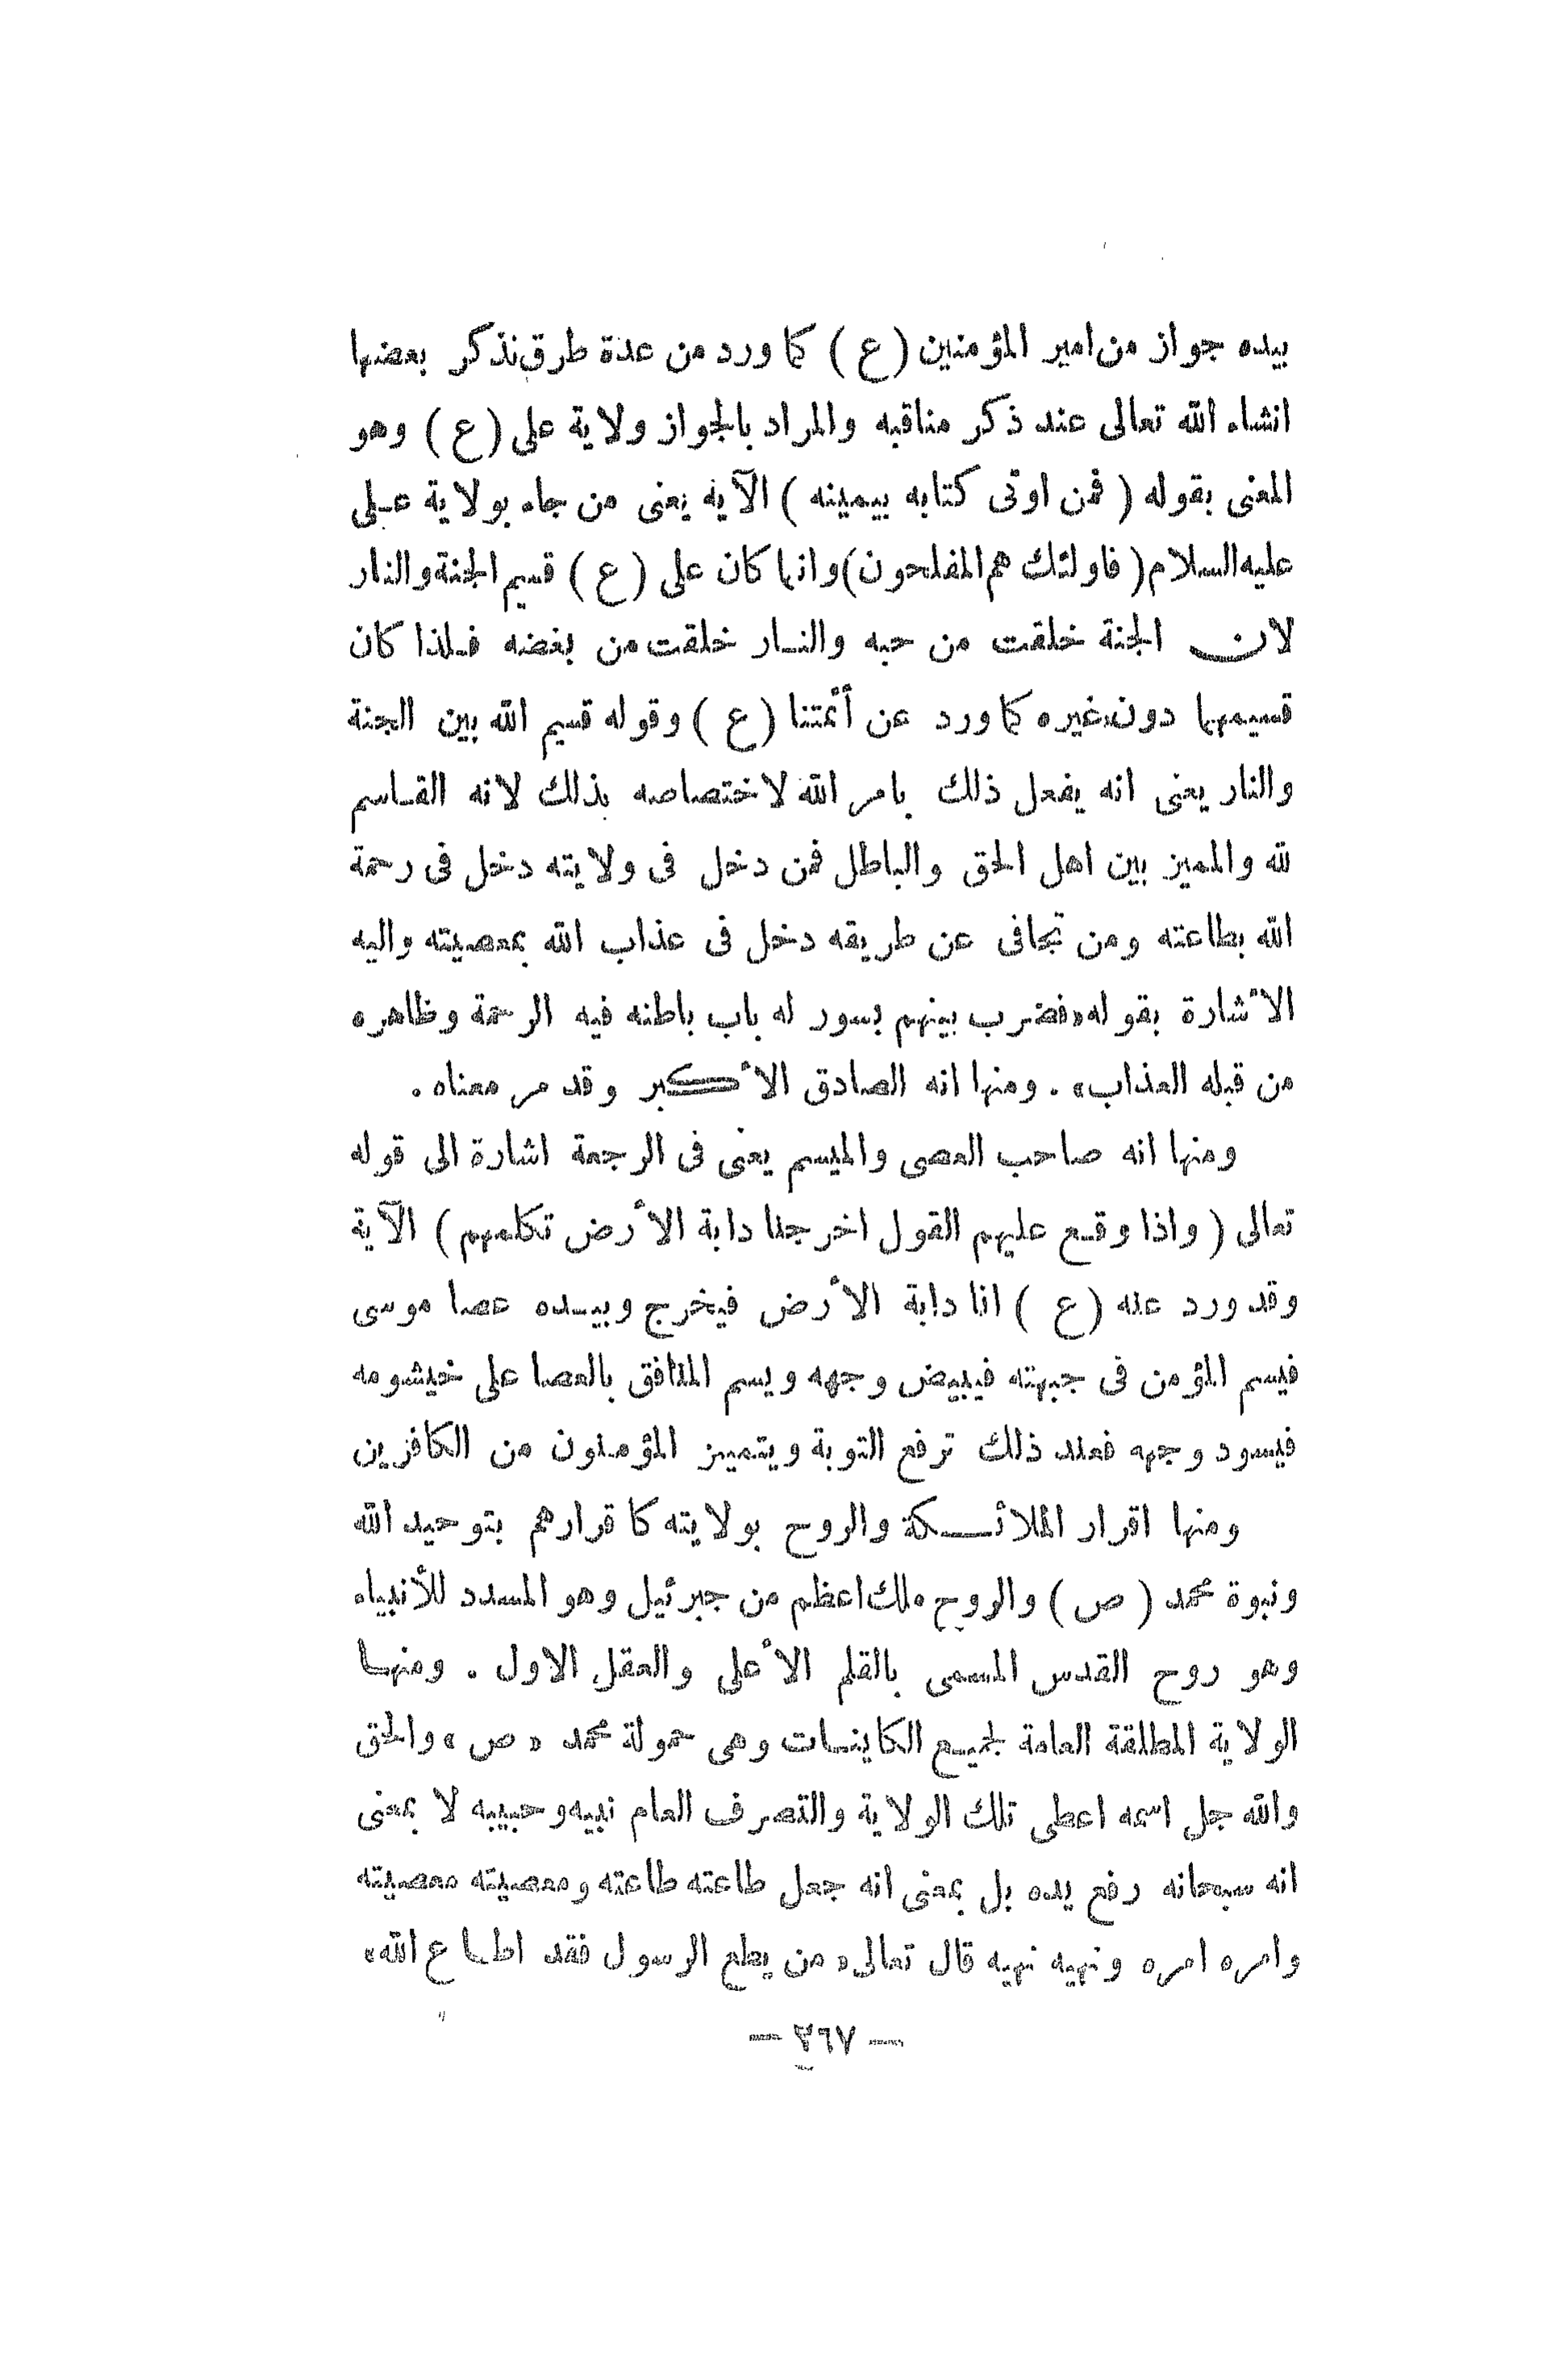 بيده جواز من امير المؤمنين ( ع ) كما ورد من عدة طرق نذكر بعضها
انشاء الله تعالى عند ذكر مناقبه والمراد بالجواز ولاية على ( ع ) وهو
المعنى بقوله ( فمن اوتى كتابه بيمينه ) الآية يعنى من جاء بولاية عـلى
عليه السلام ( فاولئك هم المفلحون ) وانما كان على ( ع ) قسيم الجنة والنار
لان الجنة خلقت من حبه والنـار خلقت من بغضه فـلذا كان
قسيمهما دون غيره كما ورد عن أئمتنا ( ع ) وقوله قسيم الله بين الجنة
والنار يعنى انه يفعل ذلك بامر الله لاختصاصه بذلك لانه القـاسم
لله والمميز بين اهل الحق والباطل فمن دخل فى ولايته دخل فى رحمة
الله بطاعته ومن تجافى عن طريقه دخل فى عذاب الله بمعصيته واليه
الأشارة بقوله «فضرب بينهم بسور له باب باطنه فيه الرحمة وظاهره
من قبله العذاب» . ومنها انه الصادق الأكبر وقد مر معناه .
ومنها انه صاحب العصى والميسم يعنى فى الرجعة اشارة الى قوله
تعالى ( واذا وقـع عليهم القول اخرجنا دابة الأرض تكلمهم ) الآية
وقد ورد عنه ( ع ) انا دابة الأرض فيخرج وبيـده عصا موسى
فيسم المؤمن فى جبهته فيبيض وجهه ويسم المنافق بالعصا على خيشومه
فيسود وجهه فعند ذلك ترفع التوبة ويتميز المؤمنون من الكافرين
ومنها اقرار الملائـكة والروح بولايته كاقرارهم بتوحيد الله
ونبوة محمد ( ص ) والروح ملك اعظم من جبرئيل وهو المسدد للأنبياء
وهو روح القدس المسمى بالقلم الأعلى والعقل الاول . ومنهـا
الولاية المطلقة العامة لجميـع الكاينـات وهى حمولة محمد « ص » والحق
والله جل اسمه اعطى تلك الولاية والتصرف العام نبيه وحبيبه لا بمعنى
انه سبحانه رفع يده بل بمعنى انه جعل طاعته طاعته ومعصيته معصيته
وامره امره ونهيه نهيه قال تعالى « من يطع الرسول فقد اطـاع الله»
— ٢٦٧ —